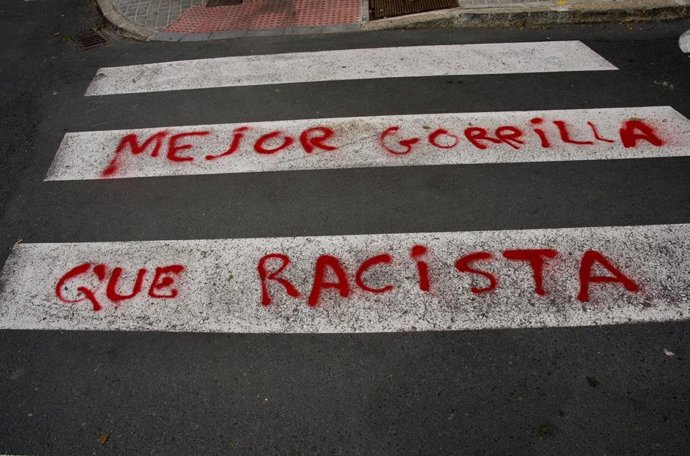 MEJOR GORRILLA
QUE RACISTA